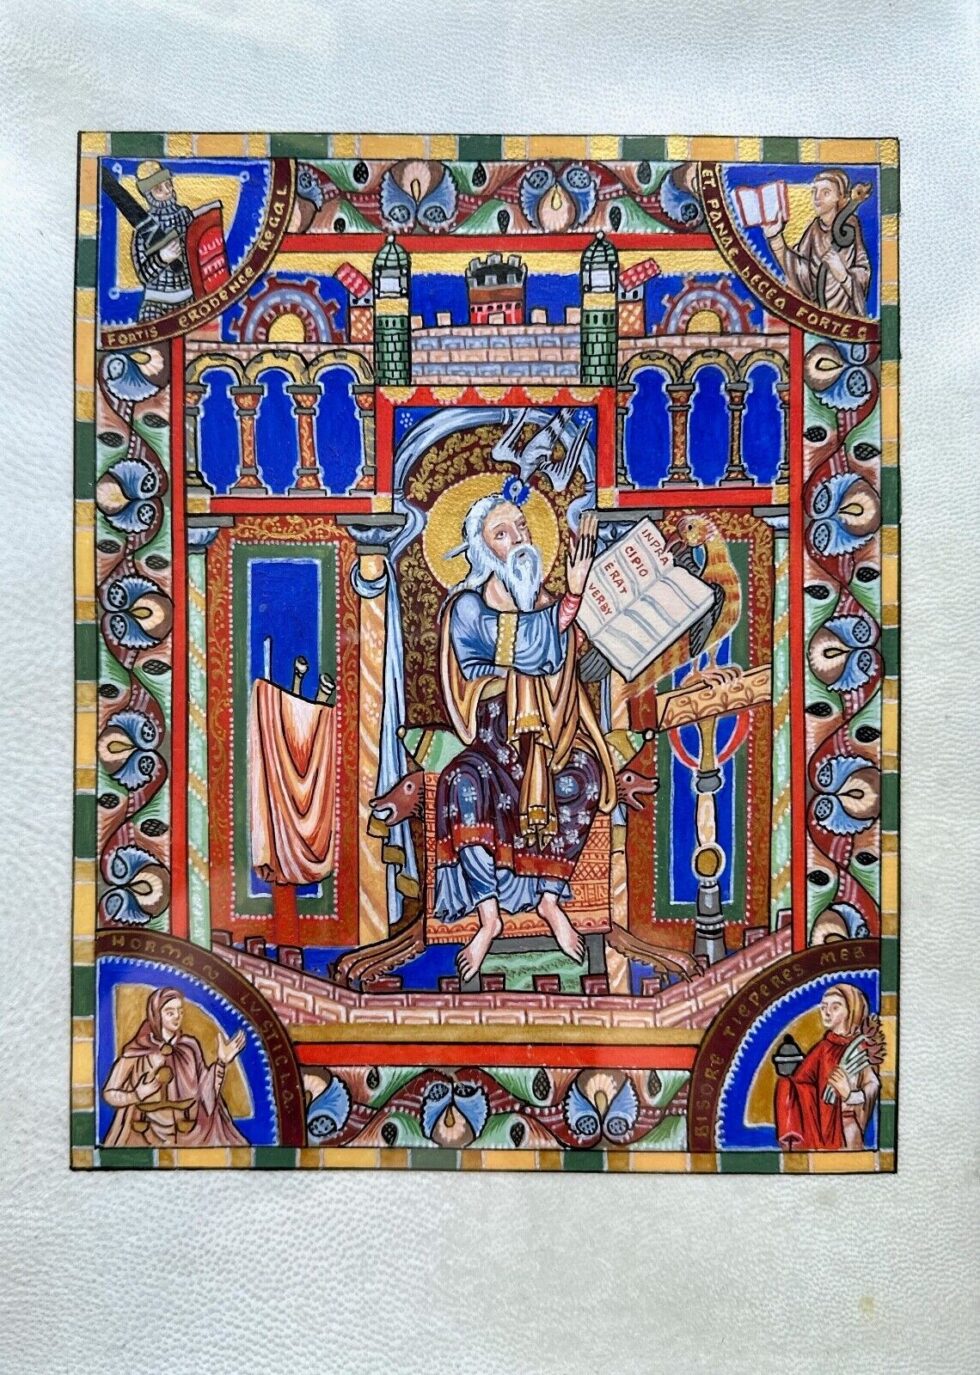 FORTIS ERODENCE REGAL
ET PANDE FORTES
INPRA
CIPIO
ERAT
VERBV
HORMAN LVSTICIA
BISORE TIEPERES MEA